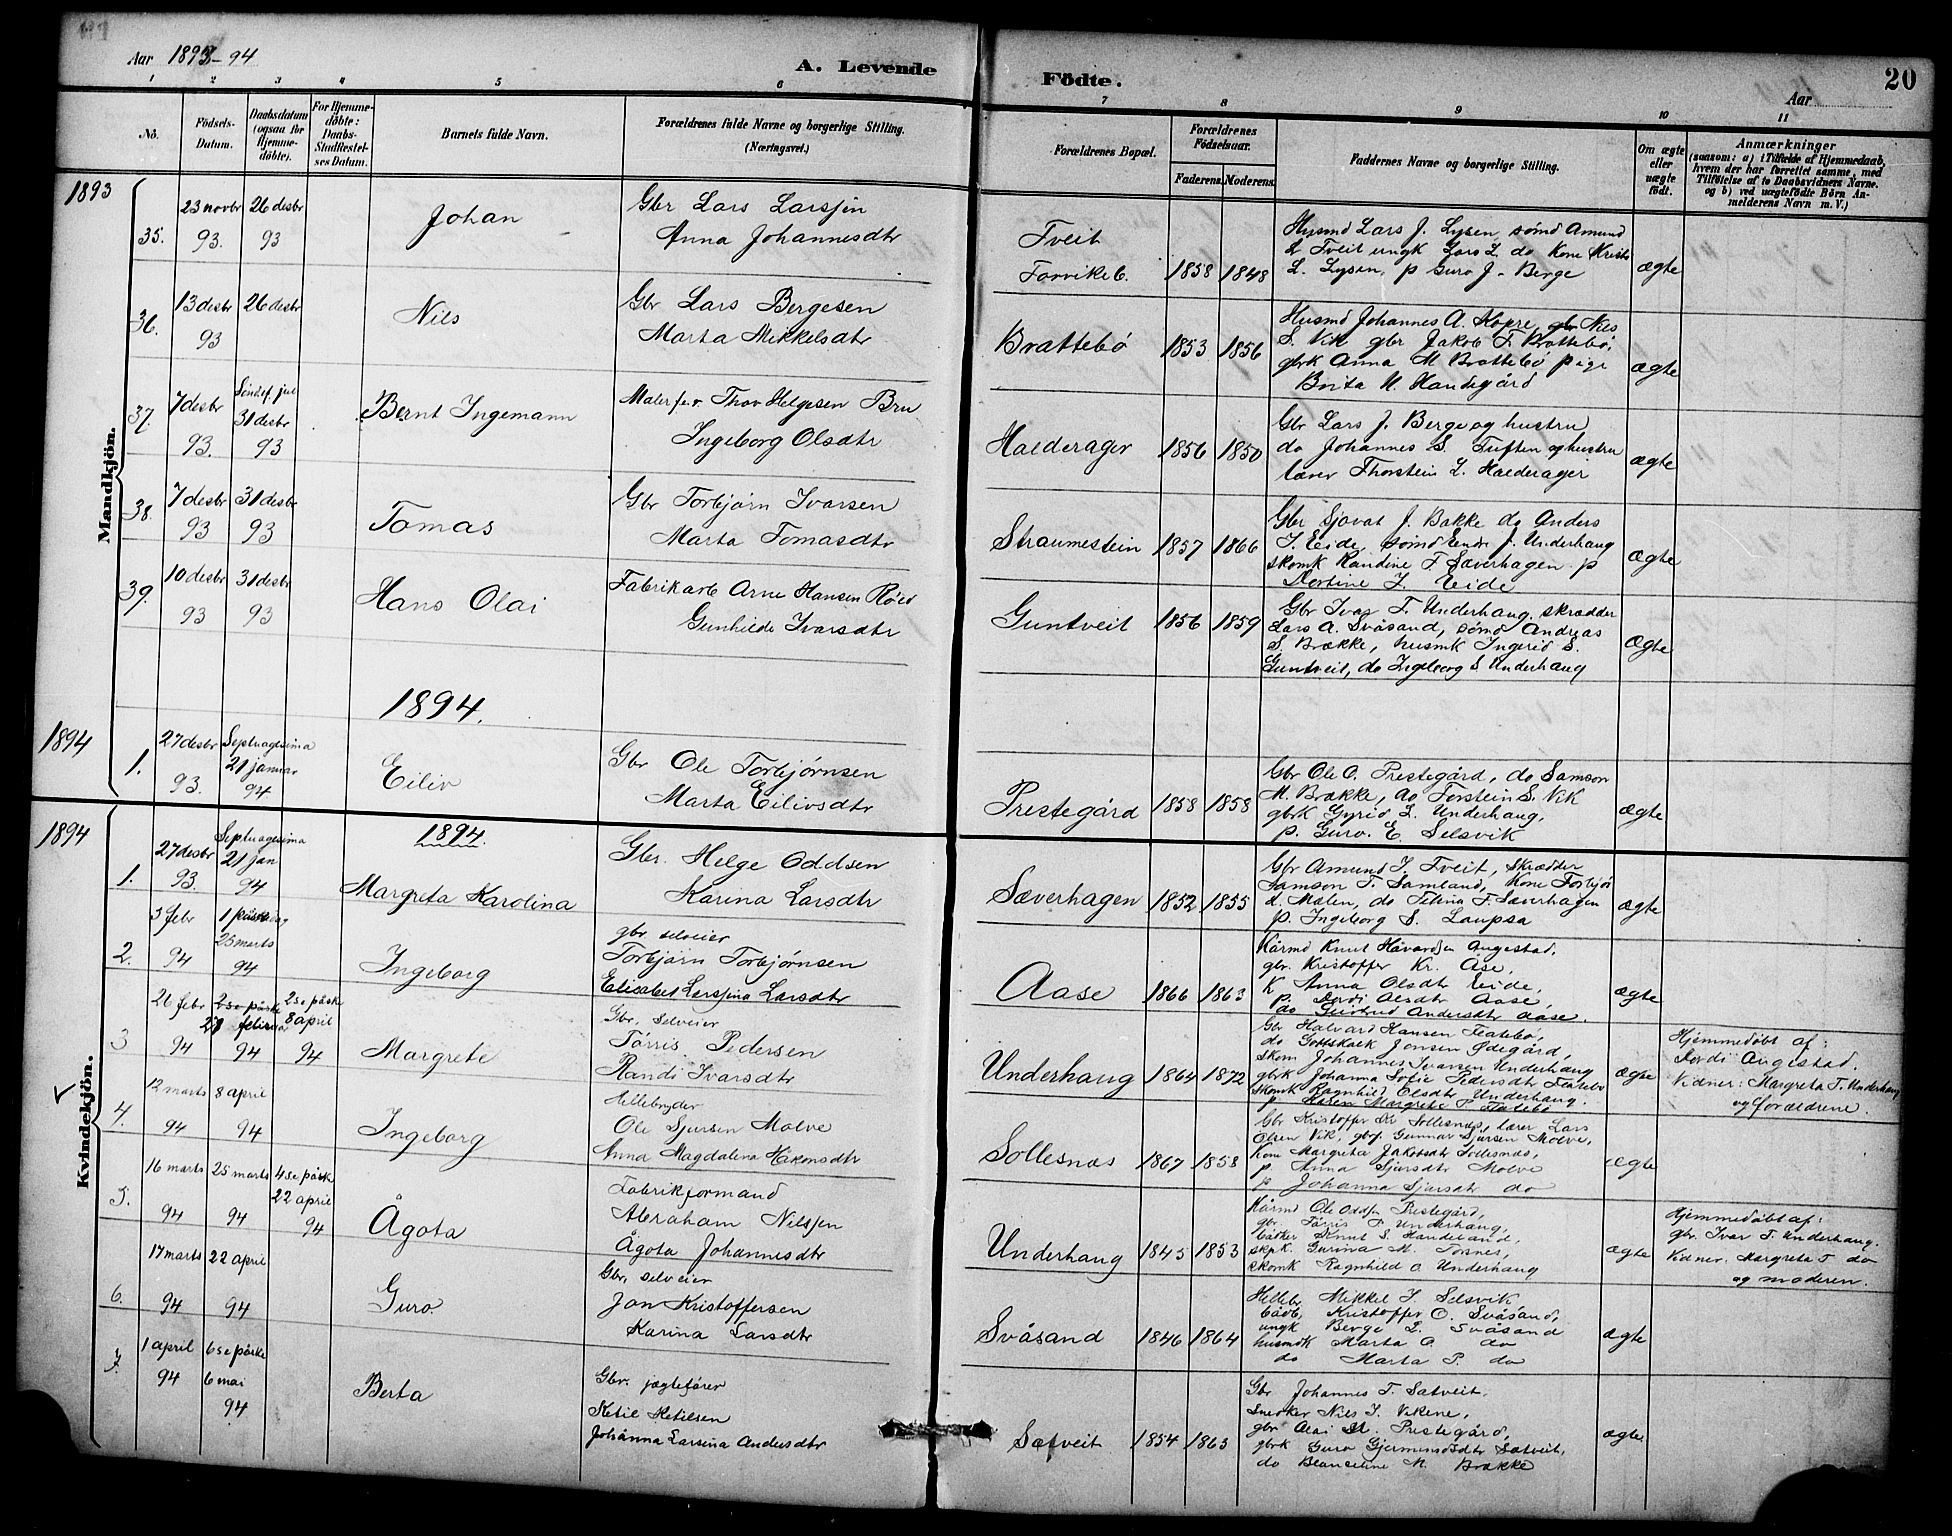 Aar 1893-94
A. Levende
Födte.
20
Aar
1 2 3 4 5 6
7 8 9 10 11
No.
Födsels-Datum.
Daabsdatum (ogsaa for Hjemmedöbte).
For Hjemmedöbte: Daabs-Stadfæstelses Datum.
Barnets fulde Navn.
Forældrenes fulde Navne og borgerlige Stilling.
(Næringsvei.)
Forældrenes Bopæl.
Forældrenes Födselsaar.
Faderens. Moderens.
Faddernes Navne og borgerlige Stilling.
Om ægte eller uægte födt.
Anmærkninger
(saasom: a) i Tilfælde af Hjemmedaab,
hvem der har forrettet samme, med
Tilföielse af to Daabsvidners Navne.
og b) ved uægtefödte Börn An-
melderens Navn m. V.)
Mandkjön.
1893
35.
23 novbr 93.
26 desbr 93
Johan
Gbr Lars Larssen
Anna Johannesdtr
Tveit
1858 1848
Husmd Lars J. Lysen, sømd Amund
L Tveit ungk Lars L. do Kone Kristi
L. Lysen, p Guro J. Berge
ægte
36.
13 desbr 93
26 desbr
Nils
Gbr Lars Bergesen
Marta Mikkelsdtr
Brattebö
1853 1856
Husmd Johannes A. Kopre, gbr Nils
S. Vik gbr Jakob T. Brattebö,
gbrk Anna M Brattebö pige
Brita N. Handegård
ægte
37.
7 desbr 93.
Sönd ef. jul
31 desbr 93
Bernt Ingemann
Thor Helgesen Bru
Ingeborg Olsdtr
Halderager
1856 1850
Gbr Lars J. Berge og hustru
do Johannes S. Tuften og hustru
lærer Thorstein L. Halderager
ægte
38.
7 desbr 93
31 desbr 93
Tomas
Gbr Torbjörn Ivarsen
Marta Tomasdtr
Straumestein
1857 1866
Gbr Sjovat J. Bakke do Anders
I. Eide, sømd Endre J. Underhaug
skomk Randine T. Sæverhagen. p
Nortine I. Eide
ægte
39.
10 desbr 93
31 desbr 93
Hans Olai
Fabrikarb Arne Hansen
Gunhilde Ivarsdtr
Guntveit
1856 1859
Gbr Ivar T. Underhaug. skrædder
Lars A. Svåsand, sømd Andreas
S. Brække, husmk Ingerid S.
Guntveit, do Ingeborg S Underhaug
ægte
1894.
1894
1.
27 desbr 93.
Septuagesima
21 januar 94.
Eiliv
Gbr Ole Torbjørnsen
Marta Eilivsdtr
Prestegård
1858 1858
Gbr Ole O. Prestegård, do Samson
M. Brække, do Torstein S. Vik
gbrk Gyrid L. Underhaug,
p. Guro. E. Selsvik
ægte
1894
Kvindekjön.
1894.
1.
27 desbr 93.
Septuagesima
21 jan 94
Margreta Karolina
Gbr. Helge Oddsen
Karina Larsdtr
Sæverhagen
1852 1855
Gbr Amund I. Tveit, skrædder
Samson T. Samland, Kone Torbjör
d. Malen, do Telina T. Sæverhagen
p. Ingeborg S. Laupsa
ægte
2.
3 febr 94
25 marts 94
Ingeborg
gbr selveier
Torbjørn Torbjørnsen
Elisabet Larssina Larsdtr
Aase
1866 1863
Kårmd Knut Håvardsen Augestad.
gbr. Kristoffer Kr. Åse,
K Anna Olsdtr Eide,
p. Olsdtr Aase,
do Andersdtr Aase.
ægte
3
26 febr 94
2se påske
februar
94
2se påsk
8 april 94
Margrete
Gbr. Selveier
Torris Pedersen
Randi Ivarsdtr
Underhaug
1864 1872
Gbr Halvard Hansen Flatebø,
do Gottskalk Jonsen Ødegård,
skom Johannes Ivarsen Underhaug
gbrk Johanna Sofie Pedersdtr Flatebø
skomk Ragnhild Olsdtr Underhaug.
p. Karen Margrete P. Flatebø
ægte
Hjemmedøbt af:
Augestad.
Vidner: Margreta T. Underhaug
og forældrene.
4.
12 marts 94
8 april 94
Ingeborg
Hellebryder
Ole Sjursen Molve
Anna Magdalena Håkonsdtr
Sollesnæs
1867 1858
Gbr Kristoffer Kr Sollesnæs, lærer Lars
Olsen Vik, gbrf Gunnar Sjursen Molve,
Kone Margreta Jakobsdtr Sollesnæs,
p Anna Sjursdtr Molve
p Johanna Sjursdtr do
ægte
5.
16 marts 94
25 marts 94
4se påsk
22 april 94
Ågota
Fabrikformand
Abraham Nilssen
Ågota Johannesdtr
Underhaug
1845 1853
Kårmd Ole Oddsen Prestegård,
gbr. Torris P. Underhaug,
bådker Knut S. Handeland,
skpk. Gurina M. Tosnes,
skomk Ragnhild O. Underhaug
ægte
Hjemmedøbt af:
gbr. Ivar T. Underhaug.
Vidner. Margreta T do
og moderen.
6.
17 marts 94
22 april 94
Guro
Gbr. selveier
Jon Kristoffersen
Karina Larsdtr
Svåsand
1846 1864
Hellebr Mikkel I Selsvik
bådb. Kristoffer O. Svåsand,
ungk Berge L. Svåsand
husmdk Marta O. do
do Marta P. do
ægte
7.
1 april 94
6se påske
6 mai 94
Berta
Gbr. jægtefører
Ketil Ketilsen
Johanna Larsina Andersdtr
Sætveit
1854 1863
Gbr Johannes T. Sætveit,
Snedker Nils I. Vikene,
gbr Olai M. Prestegård,
gbrk Guro Gjermundsdtr Sætveit,
do M. Brække
ægte